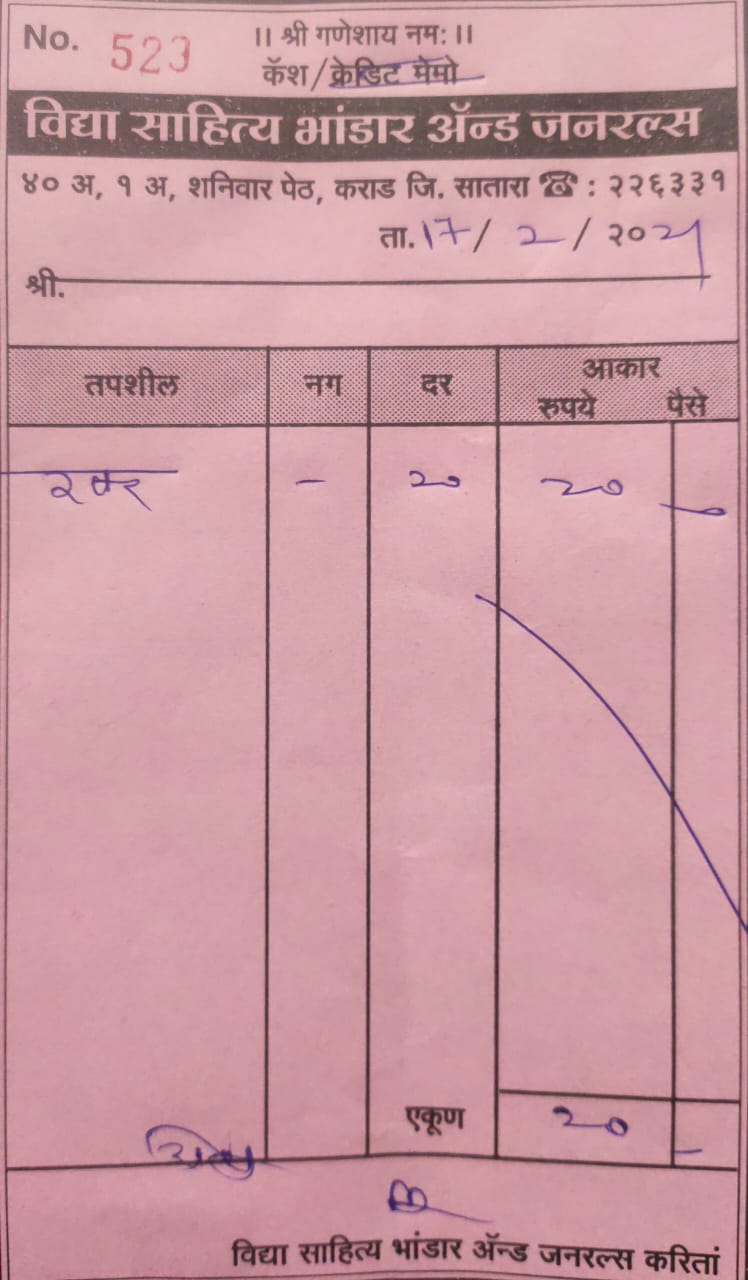 No. 523
॥ श्री गणेशाय नमः ॥
कॅश/क्रेडिट मेमो
विद्या साहित्य भांडार ॲन्ड जनरल्स
४० अ, १ अ, शनिवार पेठ, कराड जि. सातारा ☎ : २२६३३१
ता. 17/ 2 / २०21
श्री.
तपशील नग दर आकार
रुपये पैसे
रबर - 20 20 -
एकूण 20 -
विद्या साहित्य भांडार ॲन्ड जनरल्स करितां